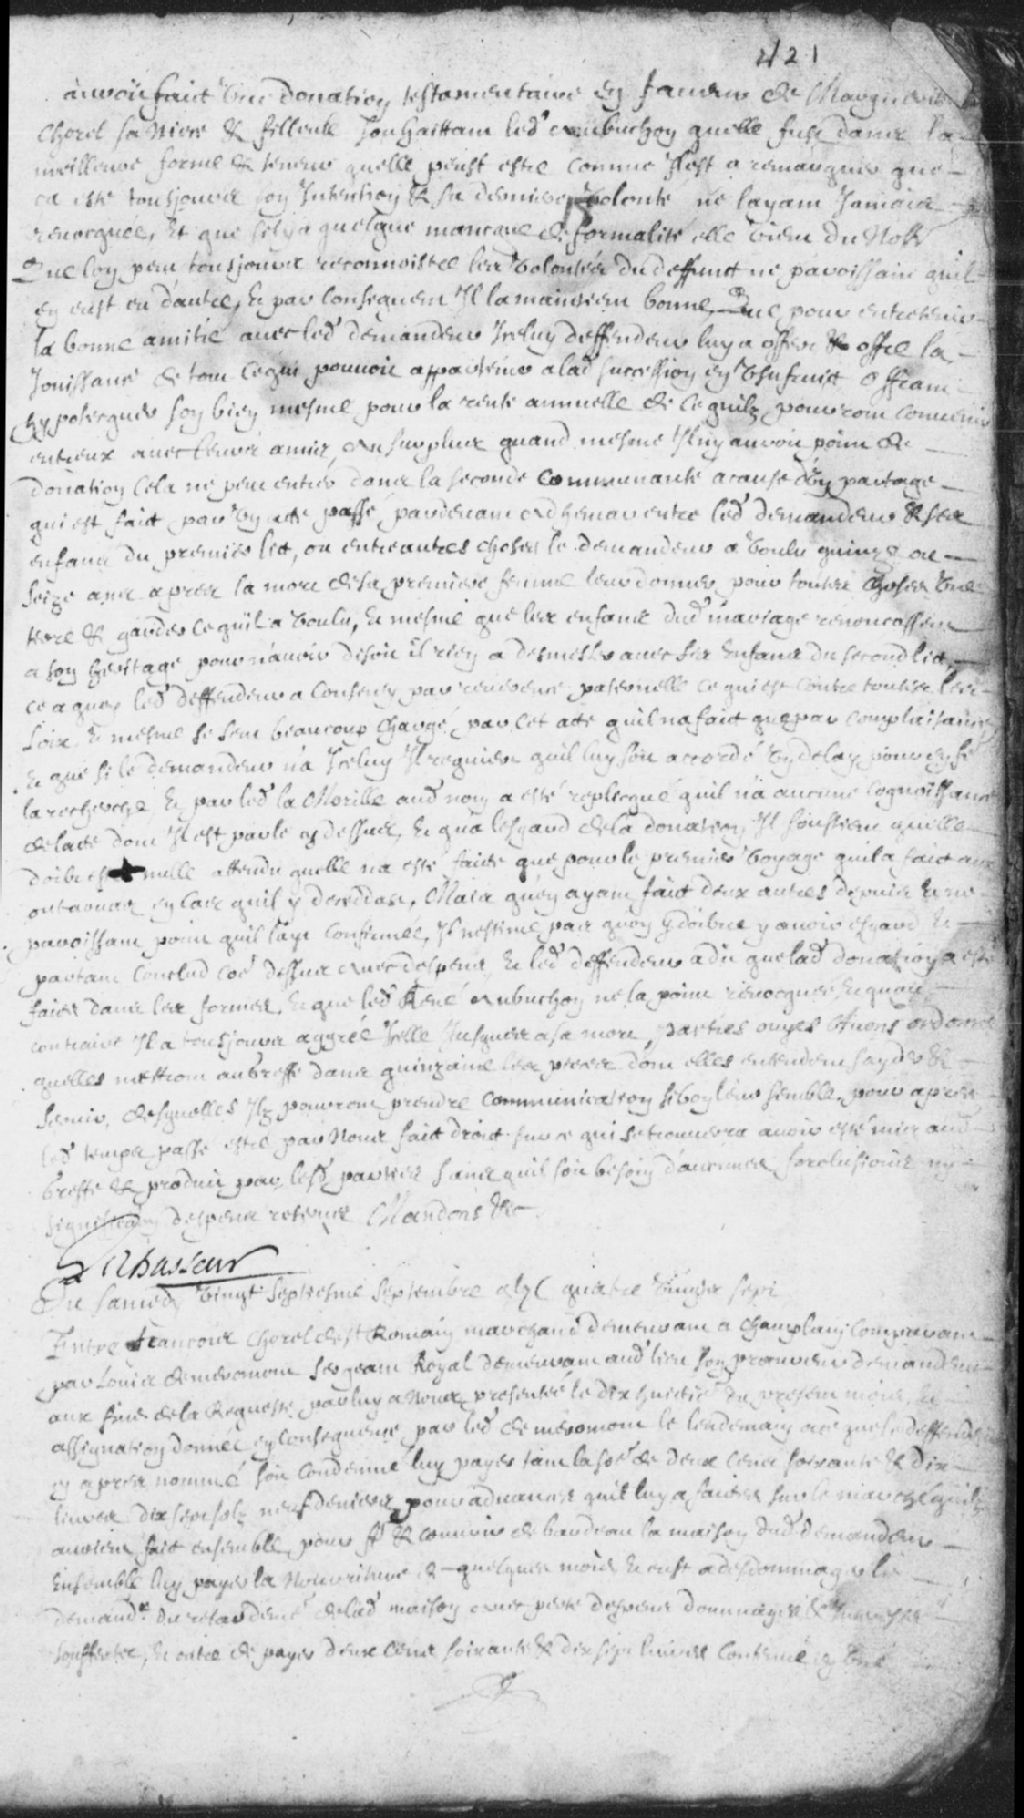 421
auroit faict une donation testamentaire en faveur de Marguerite
Chorel sa niece & filleule souhaittant led. aubuchon quelle fust dans la
meilleure forme & teneur quelle peust estre comme Il est a remarquer que
ca esté tousjours son Intention & sa derniere volonté ne layant Jamais
revocquée, Et que sil y a quelque manque de formalité elle vient du Notre
Que lon peut tousjours reconnoistre les volontés du deffunct ne paroissant quil
en eust eu dautre, Et par consequent Il la maintient bonne, Que pour entretenir
la bonne amitié avec led. demandeur Iceluy deffendeur luy a offert & offre la
Jouissance de tout ce qui pouvoit appartenir a lad. succession en usufruict offrant
hypotecquer son bien mesme pour la rente annuelle de ce quilz pourront convenir
entreux avec leurs amis, Au surplus quand mesme Il ny auroit point de
donation cela ne peut entrer dans la seconde communauté a cause dun partage
qui est faict par un acte passé pardevant adhemar entre led. demandeur & ses
enfans du premier lict, ou entre autres choses le demandeur a voulu quinze ou
seize ans apres la mort de sa premiere femme leur donner pour toutes choses une
terre & garder ce quil a voulu, Et mesme que les enfans dud. mariage renoncassent
a son heritage pour navoir disoit il rien a desmesler avec ses Enfans du second lict,
ce a quoy led. deffendeur a consenty par reverence paternelle ce qui est contre toutes les
Loix, Et mesme se sent beaucoup chargé par cet acte quil na faict que par complaisance
Et que si le demandeur na Iceluy Il requiert quil luy soit accordé un delay pour en fe
la recherche Et par led. la Morille aud. nom a esté replicqué quil na aucune cognoissance
de lacte dont Il est parlé cy dessus, Et qua lesgard de la donation Il soustient quelle
doibt est nulle attendu quelle na esté faicte que pour le premier voyage quil a faict aux
outaouax en cas quil y deceddast, Mais quen ayant faict deux autres depuis Et ne
paroissant point quil laye confirmée, Il nestime pas que lon doibve y avoir esgard Et
partant conclud coe dessus avec despens, Et led. deffendeur a dit que lad. donation a esté
faicte dans les formes, Et que led. René aubuchon ne la point revocquée, Et quau
contraire Il a tousjours aggréé Icelle Jusques a sa mort, parties ouyes Avons ordonné
quelles mettront au greffe dans quinzaine les pieces dont elles entendent sayder &
servir, desquelles Ilz pourront prendre communication si bon leur semble, pour apres
led. temps passé estre par Nous faict droit sur ce qui se trouvera avoir esté mis aud.
greffe & produit par lesd. parties sans quil soit besoin daucunes forclusions ny
signiffication despens reservez Mandons &c
Le Vasseur
Du samedy vingt septiesme Septembre gbjC quatre vingts sept
Entre francois Chorel de st Romain marchand demeurant a Champlain comparant
par Louis demeromont sergeant Royal demeurant aud. lieu son procureur demandeur
aux fins de la Requeste par luy a Nous presentée le dix huictie du present mois Et
assignation donnée en consequence par led. de meromont le lendemain a ce que le deffendeur
cy apres nommé soit condemné luy payer tant la soe de deux cens soixante & dix
livres dix sept solz neuf deniers pour advances quil luy a faictes sur le marché quilz
avoient faict ensemble pour fe & couvrir de bardeau la maison dud. demandeur
Ensemble luy payer la Nourriture de quelques mois Et eust a desdommager le
demandr du retardemt de lad. maison avec perte despens dommages & Interestz
soufferts, Et outre de payer deux cens soixante & dix sept livres contenus en une